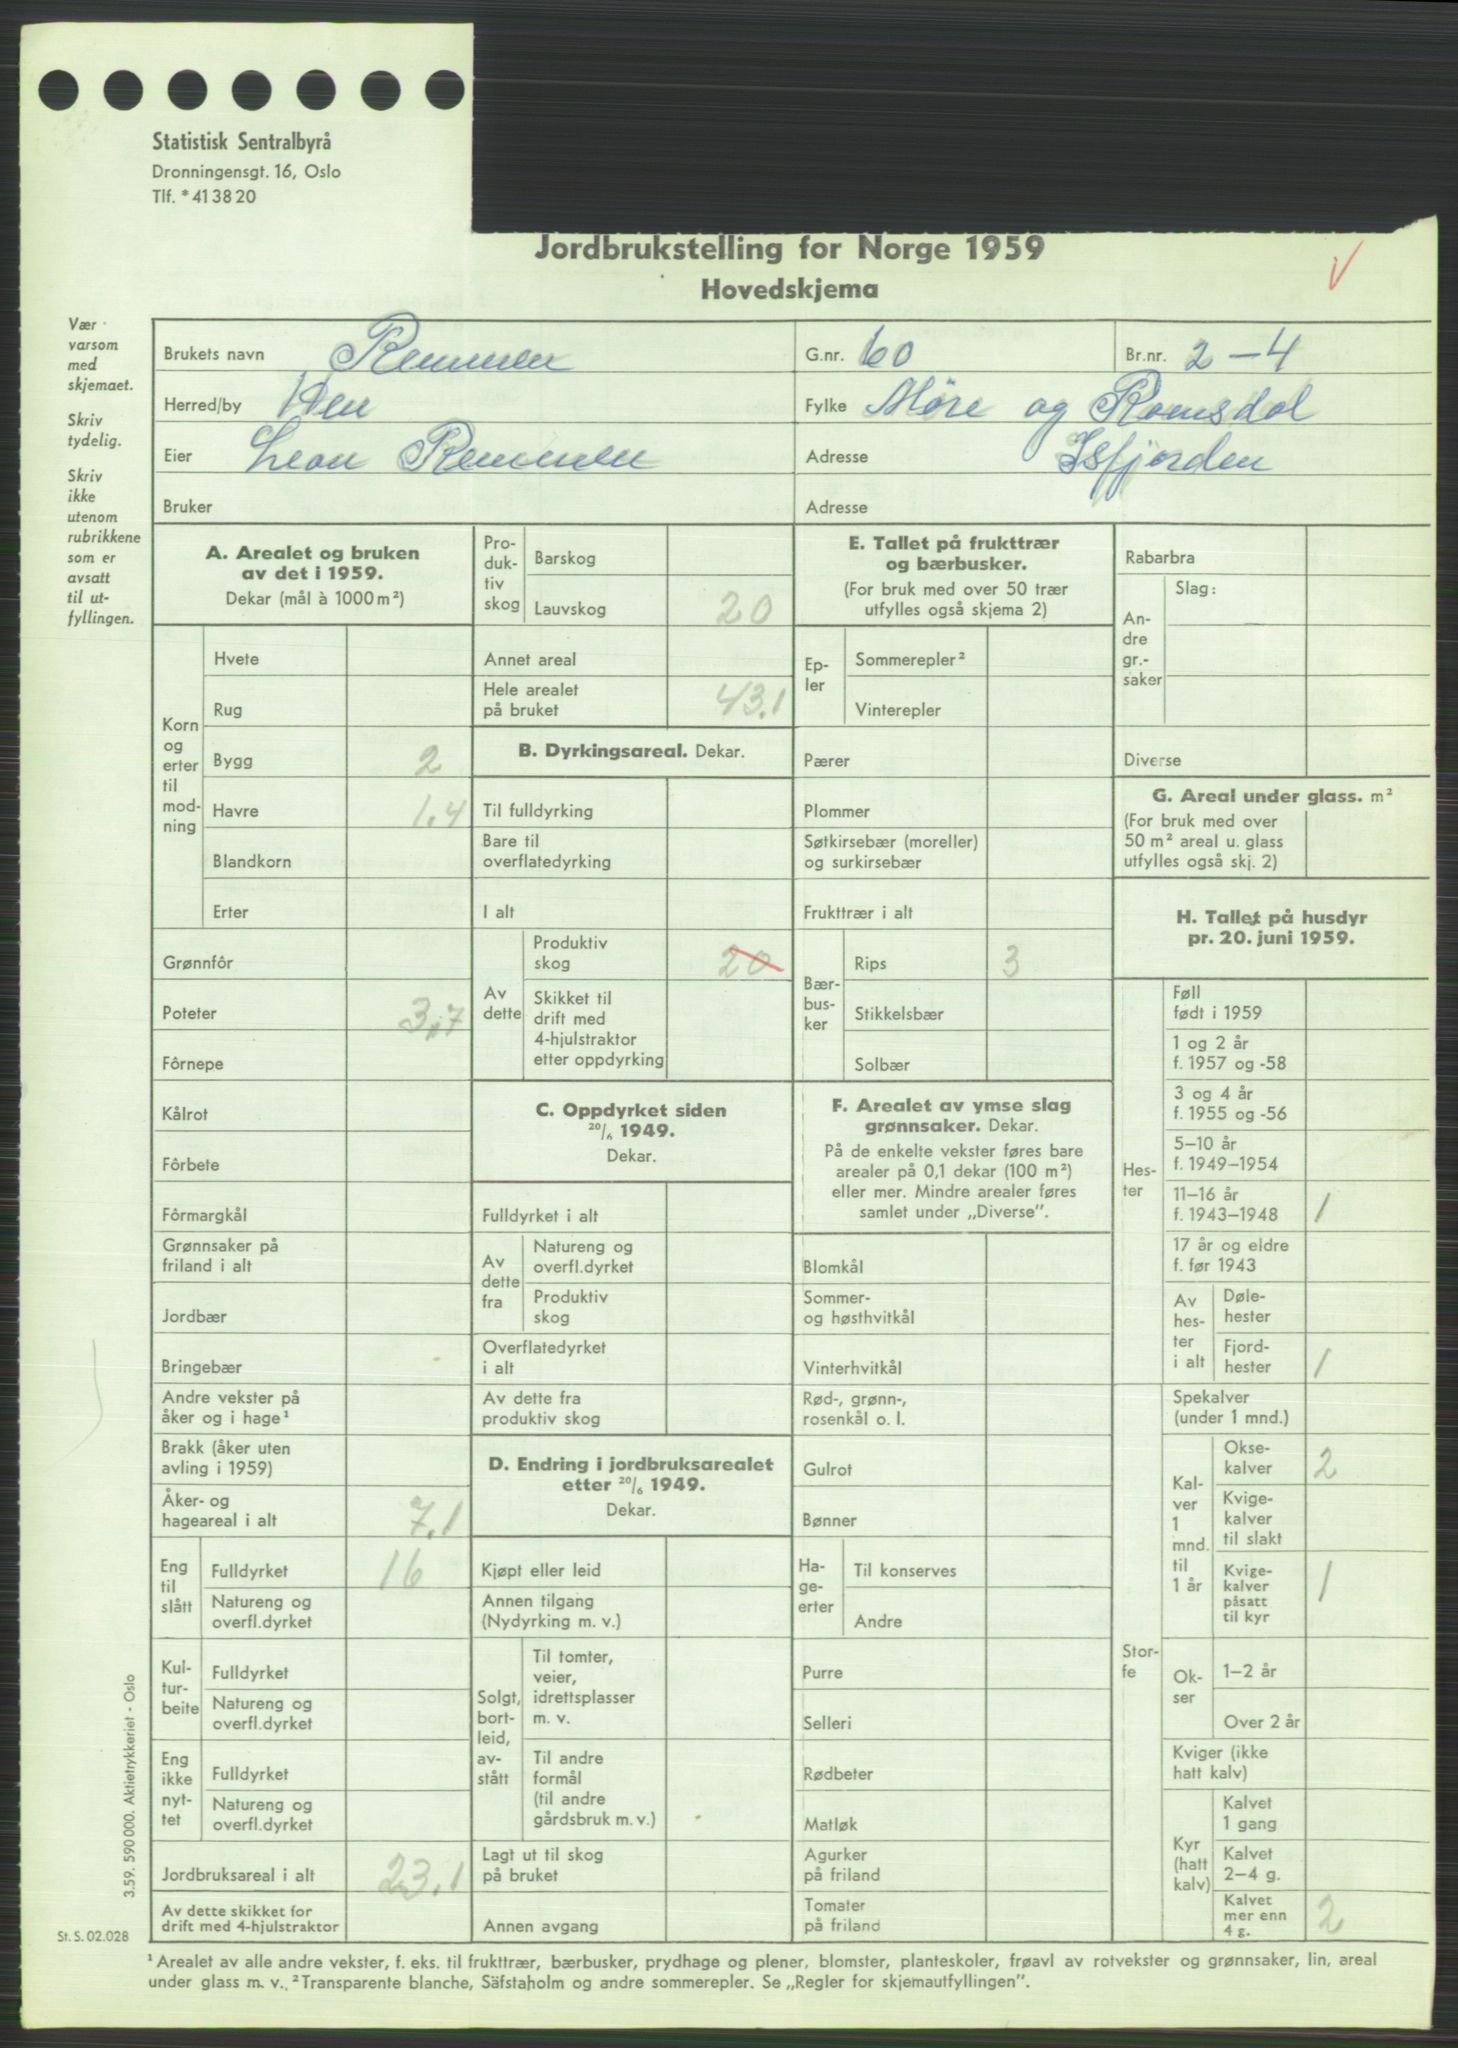 Statistisk Sentralbyrå
Dronningensgt. 16, Oslo
Tlf. * 41 38 20
Jordbrukstelling for Norge 1959
Hovedskjema
Vær
varsom
med
skjemaet.
Skriv
tydelig.
Skriv
ikke
utenom
rubrikkene
som er
avsatt
til ut-
fyllingen.
Brukets navn Remmen G.nr. 60 Br.nr. 2-4
Herred/by Hen Fylke Møre og Romsdal
Eier Leon Remmen Adresse Isfjorden
Bruker Adresse
A. Arealet og bruken
av det i 1959.
Dekar (mål à 1000 m²)
Korn
og
erter
til
mod-
ning
Hvete
Rug
Bygg 2
Havre 1,4
Blandkorn
Erter
Grønnfôr
Poteter 3,7
Fôrnepe
Kålrot
Fôrbete
Fôrmargkål
Grønnsaker på
friland i alt
Jordbær
Bringebær
Andre vekster på
åker og i hage¹
Brakk (åker uten
avling i 1959)
Åker- og
hageareal i alt 7,1
Eng
til
slått
Fulldyrket 16
Natureng og
overfl.dyrket
Kul-
tur-
beite
Fulldyrket
Natureng og
overfl.dyrket
Eng
ikke
nyt-
tet
Fulldyrket
Natureng og
overfl.dyrket
Jordbruksareal i alt 23,1
Av dette skikket for
drift med 4-hjulstraktor
Pro-
duk-
tiv
skog
Barskog
Lauvskog 20
Annet areal
Hele arealet
på bruket 43,1
B. Dyrkingsareal. Dekar.
Til fulldyrking
Bare til
overflatedyrking
I alt
Av
dette
Produktiv
skog 20
Skikket til
drift med
4-hjulstraktor
etter oppdyrking
C. Oppdyrket siden
20/6 1949.
Dekar.
Fulldyrket i alt
Av
dette
fra
Natureng og
overfl.dyrket
Produktiv
skog
Overflatedyrket
i alt
Av dette fra
produktiv skog
D. Endring i jordbruksarealet
etter 20/6 1949.
Dekar.
Kjøpt eller leid
Annen tilgang
(Nydyrking m. v.)
Solgt,
bort-
leid,
av-
stått
Til tomter,
veier,
idrettsplasser
m. v.
Til andre
formål
(til andre
gårdsbruk m. v.)
Lagt ut til skog
på bruket
Annen avgang
E. Tallet på frukttrær
og bærbusker.
(For bruk med over 50 trær
utfylles også skjema 2)
Ep-
ler
Sommerepler²
Vinterepler
Pærer
Plommer
Søtkirsebær (moreller)
og surkirsebær
Frukttrær i alt
Bær-
bus-
ker
Rips 3
Stikkelsbær
Solbær
F. Arealet av ymse slag
grønnsaker. Dekar.
På de enkelte vekster føres bare
arealer på 0,1 dekar (100 m²)
eller mer. Mindre arealer føres
samlet under „Diverse”.
Blomkål
Sommer-
og høsthvitkål
Vinterhvitkål
Rød-, grønn-,
rosenkål o. l.
Gulrot
Bønner
Ha-
ge-
erter
Til konserves
Andre
Purre
Selleri
Rødbeter
Matløk
Agurker
på friland
Tomater
på friland
Rabarbra
An-
dre
gr.-
saker
Slag:
Diverse
G. Areal under glass. m²
(For bruk med over
50 m² areal u. glass
utfylles også skj. 2)
H. Tallet på husdyr
pr. 20. juni 1959.
Hes-
ter
Føll
født i 1959
1 og 2 år
f. 1957 og -58
3 og 4 år
f. 1955 og -56
5–10 år
f. 1949–1954
11–16 år
f. 1943–1948 1
17 år og eldre
f. før 1943
Av
hes-
ter
i alt
Døle-
hester
Fjord-
hester 1
Stor-
fe
Spekalver
(under 1 mnd.)
Kal-
ver
1
mnd.
til
1 år
Okse-
kalver 2
Kvige-
kalver
til slakt
Kvige-
kalver
påsatt
til kyr 1
Ok-
ser
1–2 år
Over 2 år
Kviger (ikke
hatt kalv)
Kyr
(hatt
kalv)
Kalvet
1 gang
Kalvet
2–4 g.
Kalvet
mer enn
4 g. 2
3.59. 590 000. Aktietrykkeriet - Oslo
St. S. 02.028
¹ Arealet av alle andre vekster, f. eks. til frukttrær, bærbusker, prydhage og plener, blomster, planteskoler, frøavl av rotvekster og grønnsaker, lin, areal
under glass m. v. ² Transparente blanche, Säfstaholm og andre sommerepler. Se „Regler for skjemautfyllingen”.